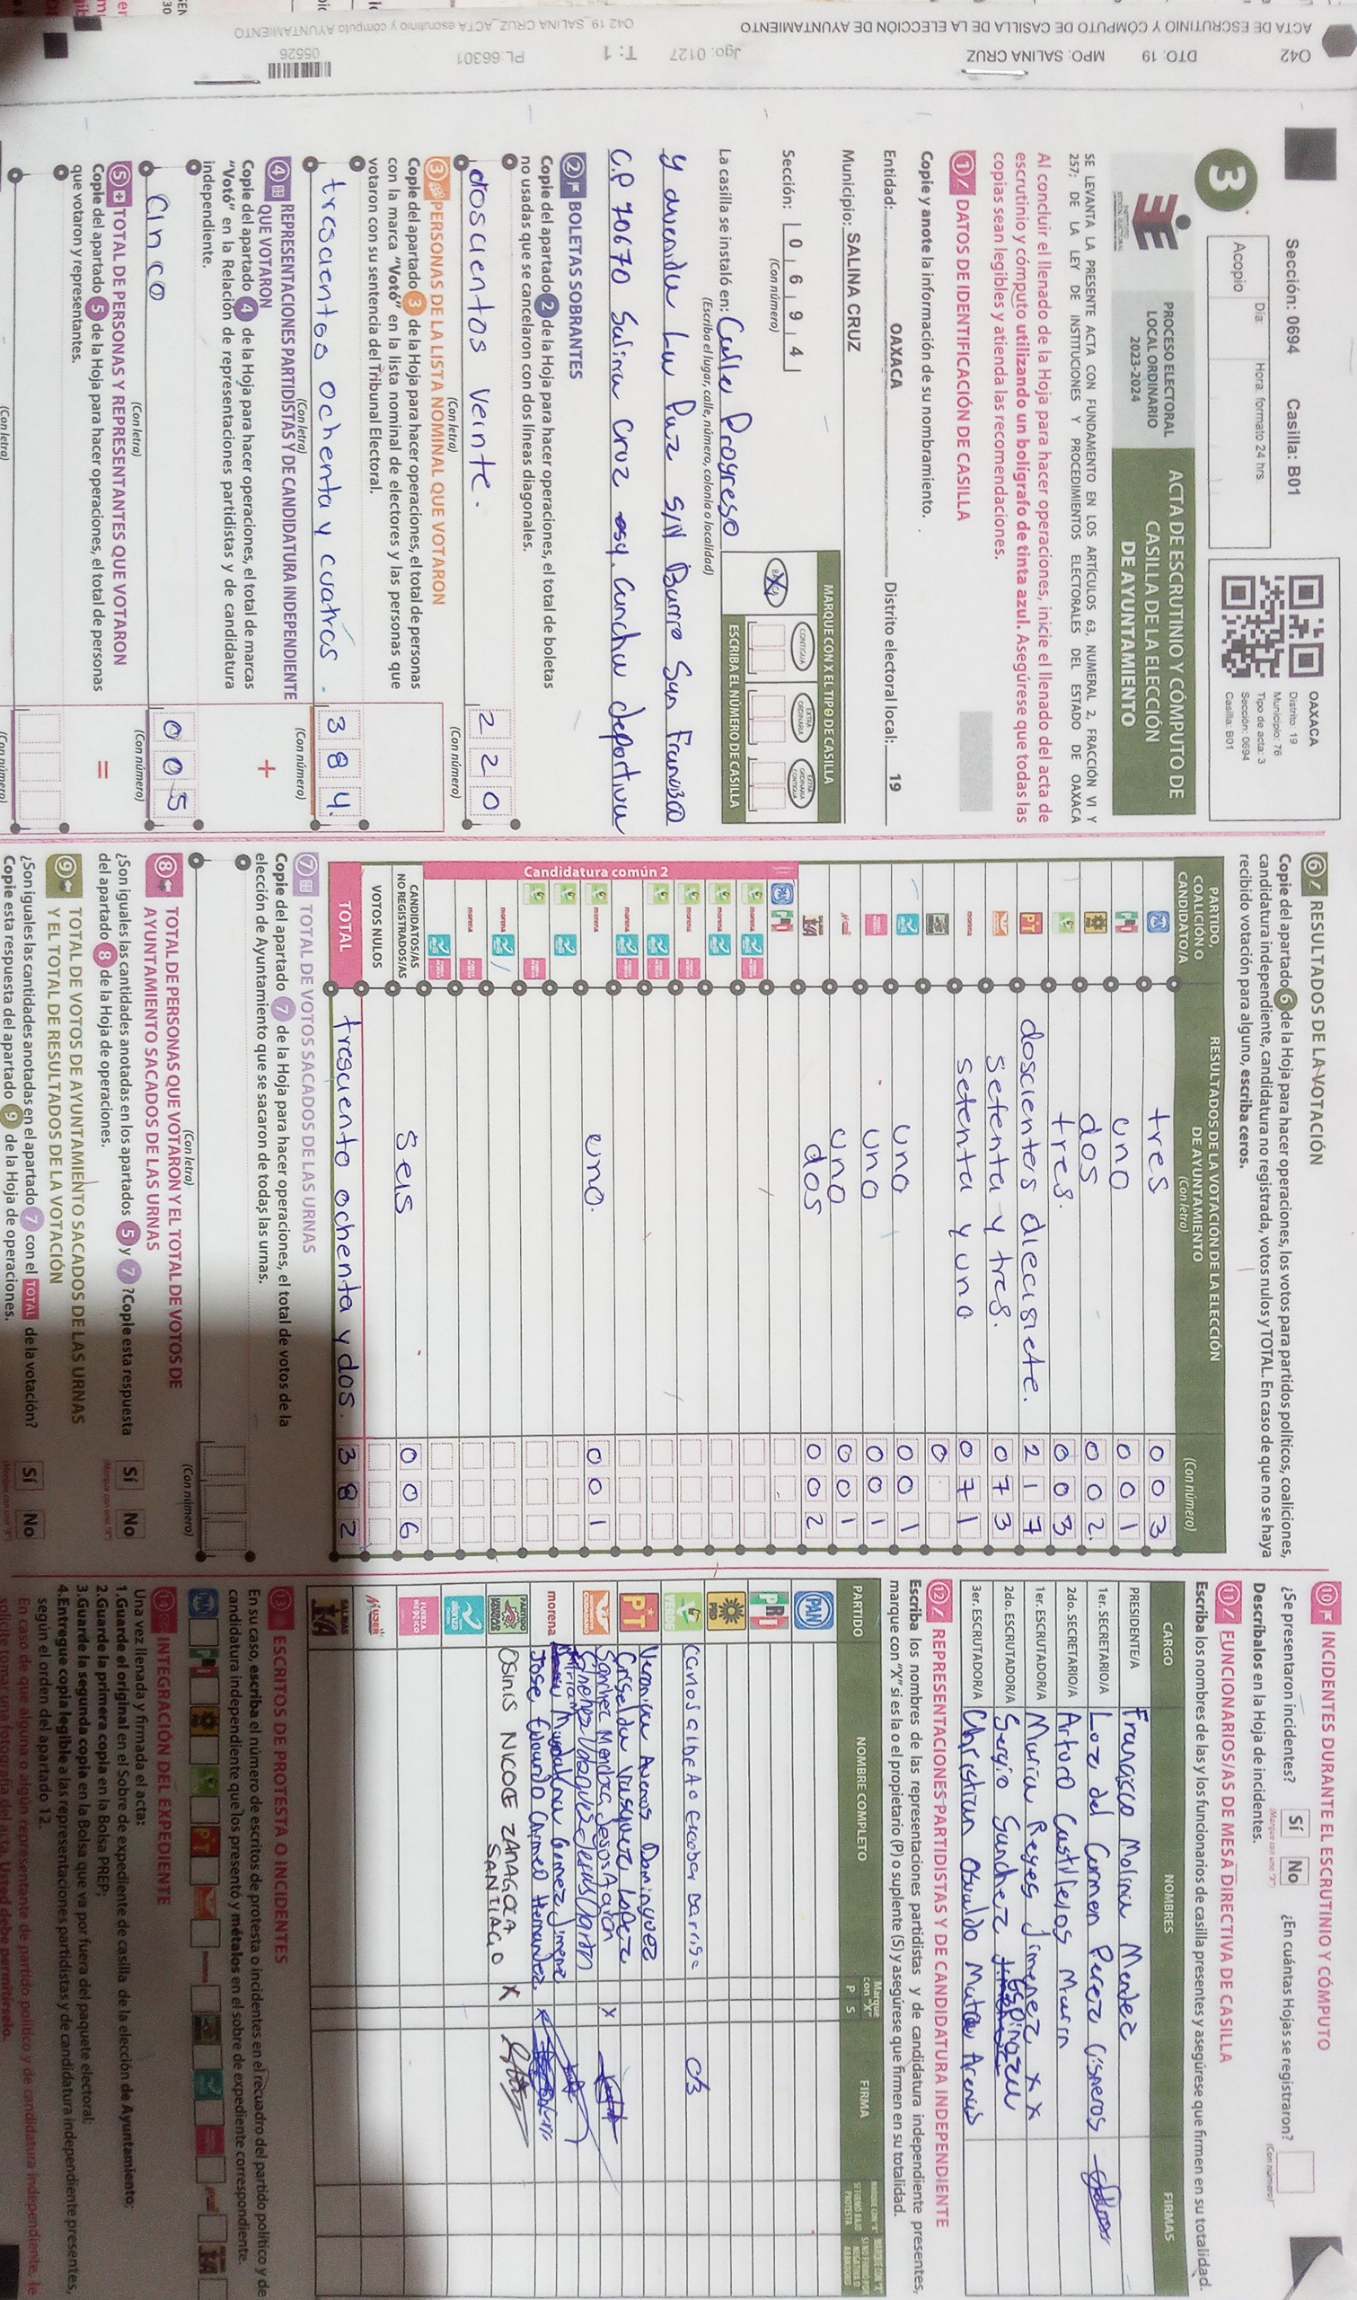 ACTA DE ESCRUTINIO Y CÓMPUTO DE CASILLA DE LA ELECCIÓN DE AYUNTAMIENTO
O42 DTO. 19 MPO. SALINA CRUZ Jgo: 0127 T: 1 PL.66301
O42 19 SALINA CRUZ_ACTA escrutinio y cómputo AYUNTAMIENTO
05526
Sección: 0694 Casilla: B01
Día: Hora: formato 24 hrs
Acopio
3
OAXACA
Distrito: 19
Municipio: 76
Tipo de acta: 3
Sección: 0694
Casilla: B01
PROCESO ELECTORAL
LOCAL ORDINARIO
2023-2024
ACTA DE ESCRUTINIO Y CÓMPUTO DE
CASILLA DE LA ELECCIÓN
DE AYUNTAMIENTO
SE LEVANTA LA PRESENTE ACTA CON FUNDAMENTO EN LOS ARTÍCULOS 63, NUMERAL 2, FRACCIÓN VI Y
257; DE LA LEY DE INSTITUCIONES Y PROCEDIMIENTOS ELECTORALES DEL ESTADO DE OAXACA
Al concluir el llenado de la Hoja para hacer operaciones, inicie el llenado del acta de
escrutinio y cómputo utilizando un bolígrafo de tinta azul. Asegúrese que todas las
copias sean legibles y atienda las recomendaciones.
1 DATOS DE IDENTIFICACIÓN DE CASILLA
Copie y anote la información de su nombramiento.
Entidad: OAXACA Distrito electoral local: 19
Municipio: SALINA CRUZ
Sección: 0 6 9 4
(Con número)
MARQUE CON X EL TIPO DE CASILLA
CONTIGUA
EXTRA ORDINARIA
EXTRA ORDINARIA CONTIGUA
ESCRIBA EL NÚMERO DE CASILLA
La casilla se instaló en: Calle Progreso
(Escriba el lugar, calle, número, colonia o localidad)
y avenida La Paz S/N Barrio San Francisco
C.P 70670 Salina Cruz Oax. Cancha deportiva
2 BOLETAS SOBRANTES
Copie del apartado 2 de la Hoja para hacer operaciones, el total de boletas
no usadas que se cancelaron con dos líneas diagonales.
doscientos veinte. 2 2 0
(Con letra) (Con número)
3 PERSONAS DE LA LISTA NOMINAL QUE VOTARON
Copie del apartado 3 de la Hoja para hacer operaciones, el total de personas
con la marca "Votó" en la lista nominal de electores y las personas que
votaron con su sentencia del Tribunal Electoral.
trescientos ochenta y cuatros. 3 8 4.
(Con letra) (Con número)
4 REPRESENTACIONES PARTIDISTAS Y DE CANDIDATURA INDEPENDIENTE
QUE VOTARON
Copie del apartado 4 de la Hoja para hacer operaciones, el total de marcas
"Votó" en la Relación de representaciones partidistas y de candidatura
independiente.
+
cinco 0 0 5
(Con letra) (Con número)
5 TOTAL DE PERSONAS Y REPRESENTANTES QUE VOTARON
Copie del apartado 5 de la Hoja para hacer operaciones, el total de personas
que votaron y representantes.
=
(Con letra) (Con número)
6 RESULTADOS DE LA VOTACIÓN
Copie del apartado 6 de la Hoja para hacer operaciones, los votos para partidos políticos, coaliciones,
candidatura independiente, candidatura no registrada, votos nulos y TOTAL. En caso de que no se haya
recibido votación para alguno, escriba ceros.
PARTIDO, COALICIÓN O CANDIDATO/A
RESULTADOS DE LA VOTACIÓN DE LA ELECCIÓN DE AYUNTAMIENTO
(Con letra) (Con número)
PAN tres 0 0 3
PRI uno 0 0 1
dos 0 0 2.
tres. 0 0 3
PT doscientos diecisiete. 2 1 7
setenta y tres. 0 7 3
morena setenta y uno 0 7 1
0
uno 0 0 1
uno 0 0 1
uno 0 0 1
dos 0 0 2
Candidatura común 2
uno. 0 0 1
CANDIDATOS/AS NO REGISTRADOS/AS seis 0 0 6
VOTOS NULOS
TOTAL tresciento ochenta y dos. 3 8 2
7 TOTAL DE VOTOS SACADOS DE LAS URNAS
Copie del apartado 7 de la Hoja para hacer operaciones, el total de votos de la
elección de Ayuntamiento que se sacaron de todas las urnas.
(Con letra) (Con número)
8 TOTAL DE PERSONAS QUE VOTARON Y EL TOTAL DE VOTOS DE
AYUNTAMIENTO SACADOS DE LAS URNAS
¿Son iguales las cantidades anotadas en los apartados 5 y 7 ? Copie esta respuesta
del apartado 8 de la Hoja de operaciones.
Sí No
9 TOTAL DE VOTOS DE AYUNTAMIENTO SACADOS DE LAS URNAS
Y EL TOTAL DE RESULTADOS DE LA VOTACIÓN
¿Son iguales las cantidades anotadas en el apartado 7 con el TOTAL de la votación?
Copie esta respuesta del apartado 9 de la Hoja de operaciones.
Sí No
10 INCIDENTES DURANTE EL ESCRUTINIO Y CÓMPUTO
¿Se presentaron incidentes? Sí No ¿En cuántas Hojas se registraron?
(Marque con una "X") (Con número)
Descríbalos en la Hoja de incidentes.
11 FUNCIONARIOS/AS DE MESA DIRECTIVA DE CASILLA
Escriba los nombres de las y los funcionarios de casilla presentes y asegúrese que firmen en su totalidad.
CARGO NOMBRES FIRMAS
PRESIDENTE/A Francisco Molina Mendez
1er. SECRETARIO/A Luz del Carmen Perez Cisneros
2do. SECRETARIO/A Arturo Castillejos Marin
1er. ESCRUTADOR/A Maria Reyes Jimenez x x
2do. ESCRUTADOR/A Sergio Sanchez Espinozau
3er. ESCRUTADOR/A Christian Osvaldo Mata Arenas
12 REPRESENTACIONES PARTIDISTAS Y DE CANDIDATURA INDEPENDIENTE
Escriba los nombres de las representaciones partidistas y de candidatura independiente presentes,
marque con "X" si es la o el propietario (P) o suplente (S) y asegúrese que firmen en su totalidad.
PARTIDO NOMBRE COMPLETO Marque con "X" P S FIRMA
PAN
PRI
PRD
VERDE Carlos Alberto Escobar Barriga
PT Veronica Avendo Dominguez
Griselda Vasquez Lopez
Sanchez Mendoza Jesus Adan x
morena Miriam Magdalena Gomez Jimenez
Jose Eduardo Carmel Hernandez.
OSIRIS NICOLE ZARAGOZA SANTIAGO X
alianza
FUERZA MÉXICO
MUJER
13 ESCRITOS DE PROTESTA O INCIDENTES
En su caso, escriba el número de escritos de protesta o incidentes en el recuadro del partido político y de
candidatura independiente que los presentó y métalos en el sobre de expediente correspondiente.
14 INTEGRACIÓN DEL EXPEDIENTE
Una vez llenada y firmada el acta:
1.Guarde el original en el Sobre de expediente de casilla de la elección de Ayuntamiento;
2.Guarde la primera copia en la Bolsa PREP;
3.Guarde la segunda copia en la Bolsa que va por fuera del paquete electoral;
4.Entregue copia legible a las representaciones partidistas y de candidatura independiente presentes,
según el orden del apartado 12.
En caso de que alguna o algún representante de partido político y de candidatura independiente, le
solicite tomar una fotografía del acta. Usted debe permitírselo.